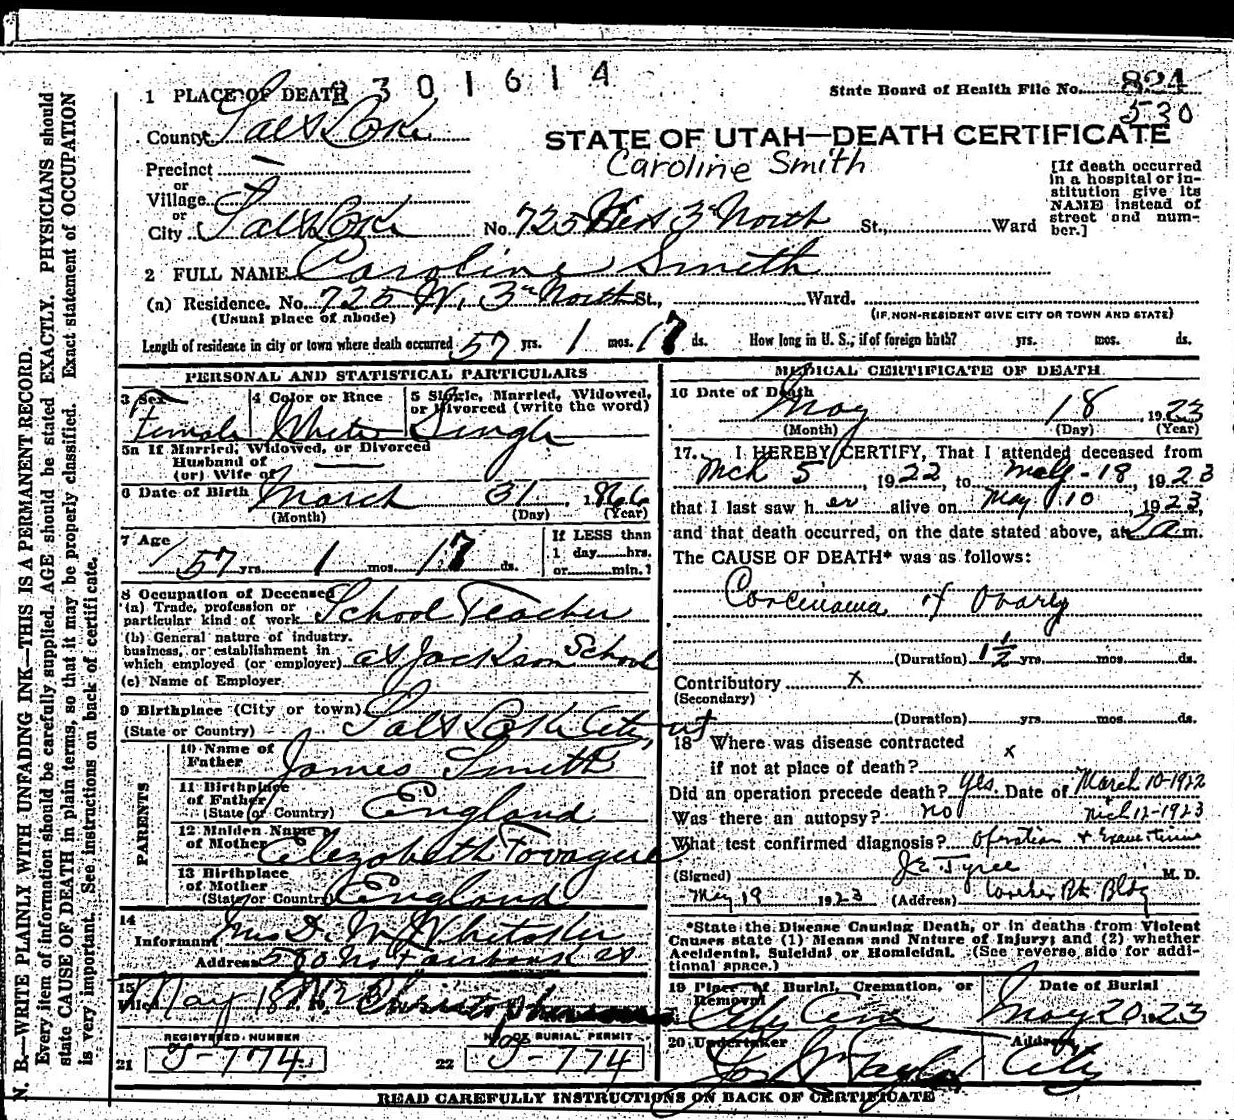 2301614
1 PLACE OF DEATH
State Board of Health File No. 824
530
County Salt Lake
STATE OF UTAH—DEATH CERTIFICATE
Caroline Smith
Precinct —
or
Village
or
City Salt Lake No. 725 West 3rd North St., Ward
[If death occurred
in a hospital or in-
stitution give its
NAME instead of
street and num-
ber.]
2 FULL NAME Caroline Smith
(a) Residence. No. 725 W. 3rd North St., Ward.
(Usual place of abode)
(IF NON-RESIDENT GIVE CITY OR TOWN AND STATE)
Length of residence in city or town where death occurred 57 yrs. 1 mos. 17 ds. How long in U. S., if of foreign birth? yrs. mos. ds.
PERSONAL AND STATISTICAL PARTICULARS
3 Sex Female
4 Color or Race White
5 Single, Married, Widowed,
or Divorced (write the word) Single
5a If Married, Widowed, or Divorced
Husband of
(or) Wife of —
6 Date of Birth March 31, 1866
(Month) (Day) (Year)
7 Age 57 yrs. 1 mos. 17 ds.
If LESS than
1 day hrs.
or min.?
8 Occupation of Deceased
(a) Trade, profession or
particular kind of work School Teacher
(b) General nature of industry,
business, or establishment in
which employed (or employer) at Jackson School
(c) Name of Employer
9 Birthplace (City or town)
(State or Country) Salt Lake City, ut
PARENTS
10 Name of
Father James Smith
11 Birthplace
of Father
(State or Country) England
12 Maiden Name
of Mother Elezabeth
13 Birthplace
of Mother
(State or Country) England
14
Informant Mrs D. M. Whitaker
Address 580 No Fairbank
15
Filed May 18 Christophersen
REGISTERED NUMBER
21 J-774
NO. OF BURIAL PERMIT
22 J-774
MEDICAL CERTIFICATE OF DEATH
16 Date of Death May 18, 1923
(Month) (Day) (Year)
17. I HEREBY CERTIFY, That I attended deceased from
Mch 5, 1922, to May-18, 1923
that I last saw her alive on May 10, 1923,
and that death occurred, on the date stated above, at 2 a m.
The CAUSE OF DEATH* was as follows:
Carcinoma of Ovary
(Duration) 1½ yrs. mos. ds.
Contributory x
(Secondary)
(Duration) yrs. mos. ds.
18 Where was disease contracted
if not at place of death? x
Did an operation precede death? yes Date of March 10-1922
Was there an autopsy? no Mch 12-1923
What test confirmed diagnosis? Operation +
(Signed) J E Tyree M. D.
May 19 1923 (Address) Bk Bldg
*State the Disease Causing Death, or in deaths from Violent
Causes state (1) Means and Nature of Injury; and (2) whether
Accidental, Suicidal or Homicidal. (See reverse side for addi-
tional space.)
19 Place of Burial, Cremation, or
Removal City Cem
Date of Burial
May 20 1923
20 Undertaker Jos Wm Taylor
Address City
READ CAREFULLY INSTRUCTIONS ON BACK OF CERTIFICATE
N. B.—WRITE PLAINLY WITH UNFADING INK—THIS IS A PERMANENT RECORD.
Every item of information should be carefully supplied. AGE should be stated EXACTLY. PHYSICIANS should
state CAUSE OF DEATH in plain terms, so that it may be properly classified. Exact statement of OCCUPATION
is very important. See instructions on back of certificate.